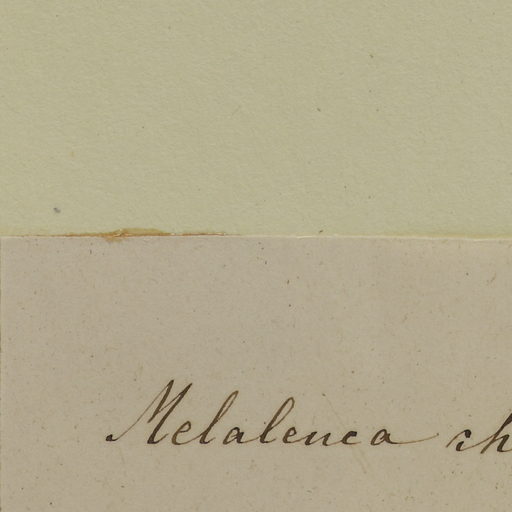 Melaleuca ch